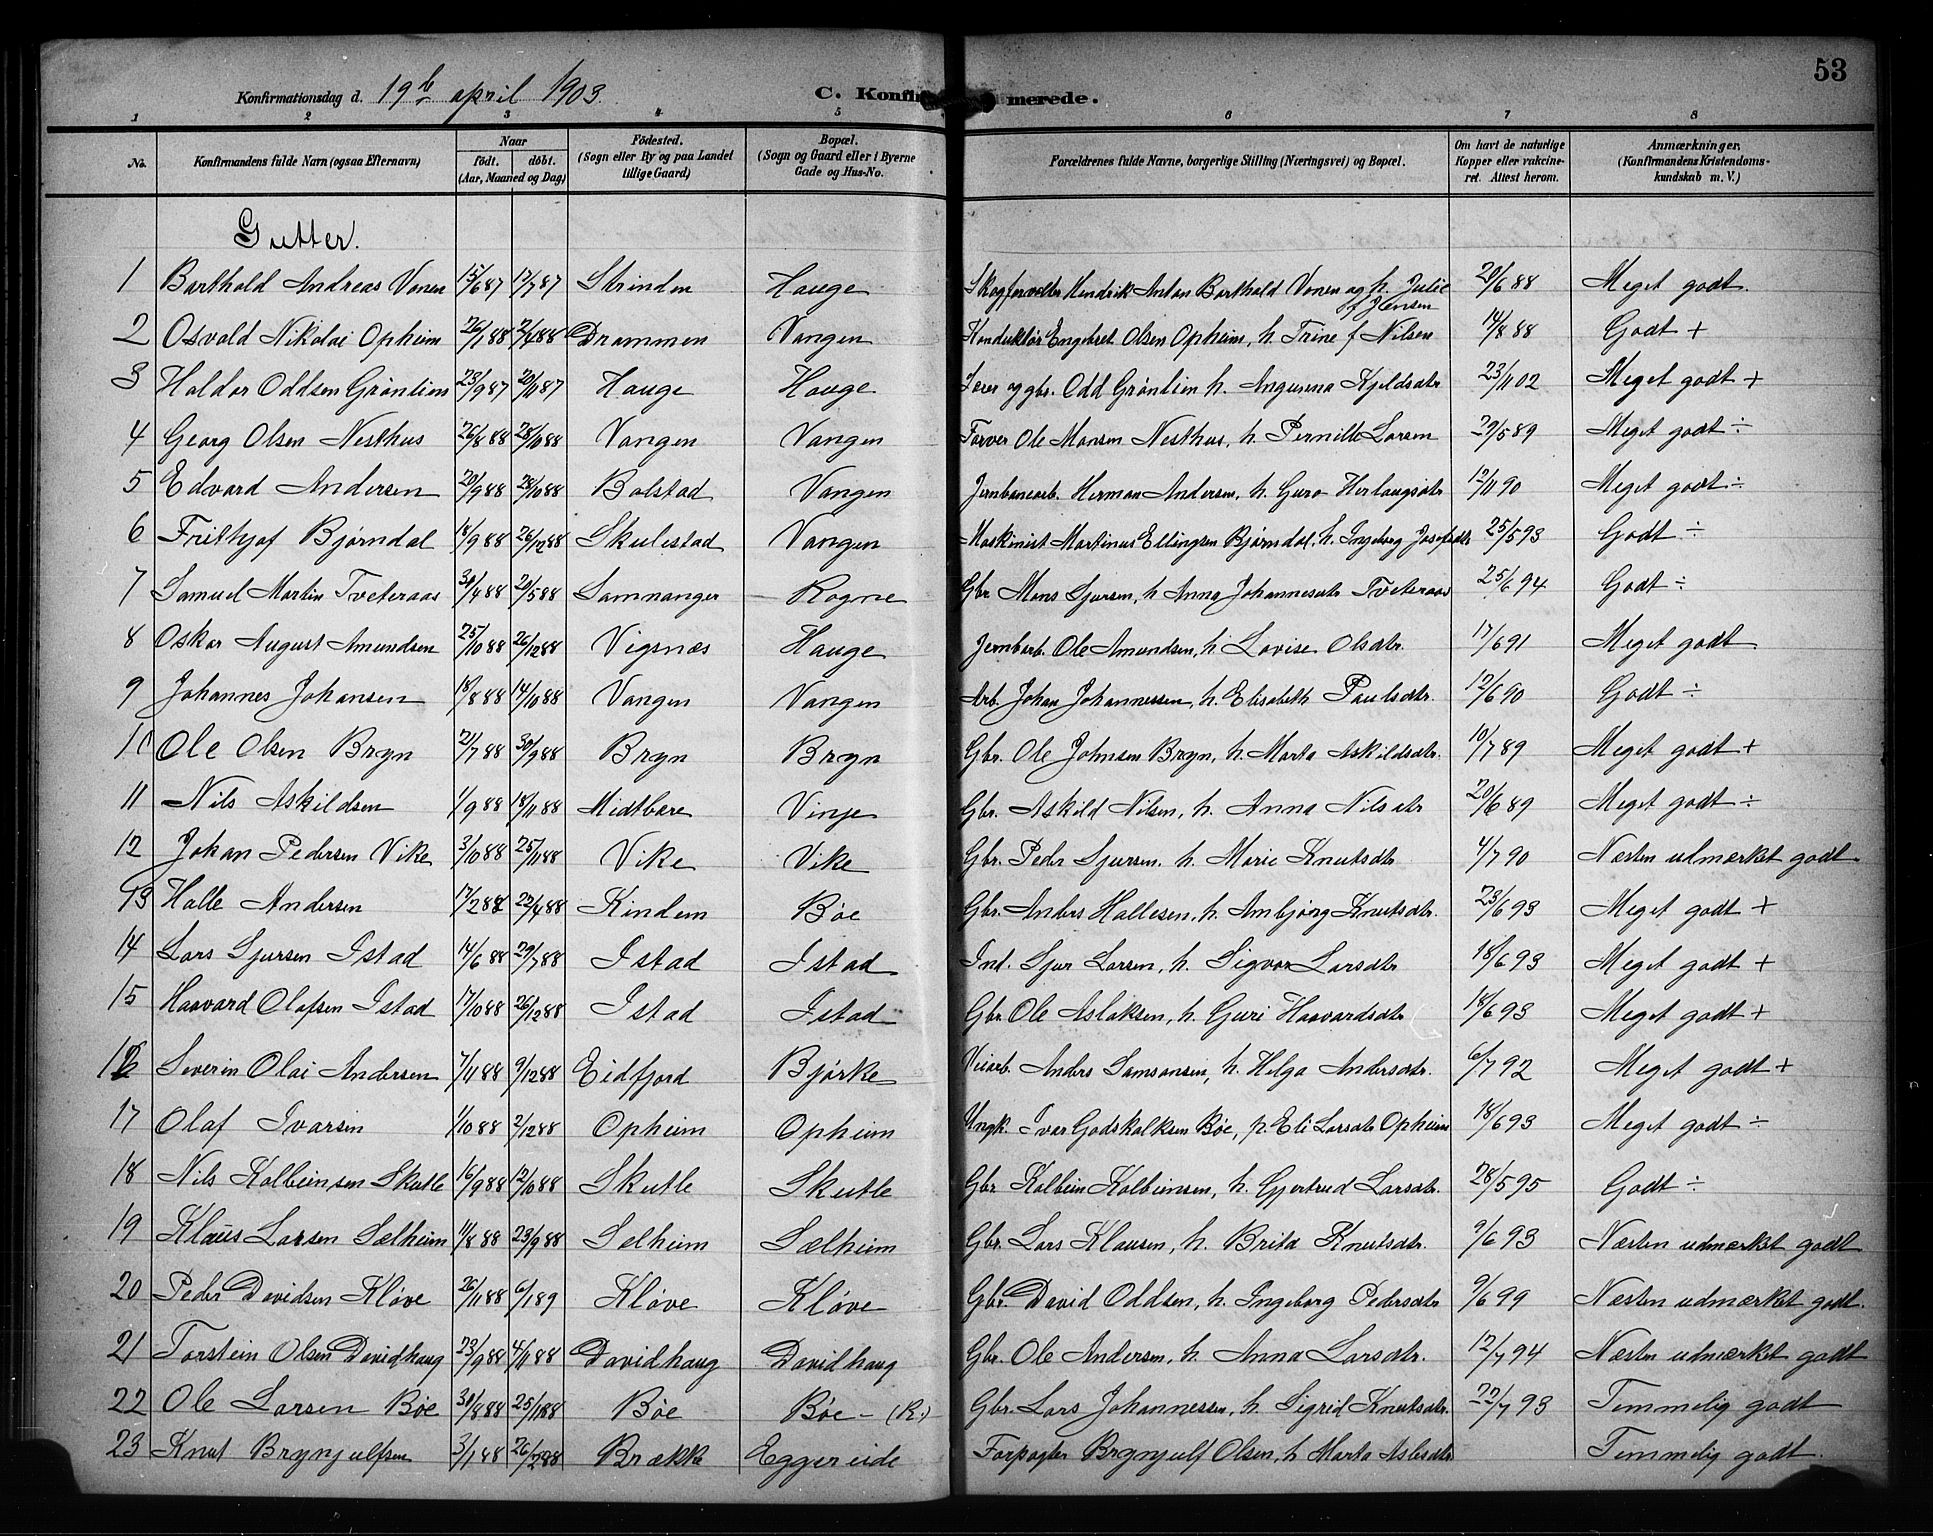 53
Konfirmationsdag d. 19de april 1903. C. Konfirmerede.
1 2 3 4 5 6 7 8
No. Konfirmandens fulde Navn (ogsaa Efternavn) Naar født. døbt. (Aar, Maaned og Dag) Fødested. (Sogn eller By og paa Landet tillige Gaard) Bopæl. (Sogn og Gaard eller i Byerne Gade og Hus-No. Forældrenes fulde Navne, borgerlige Stilling (Næringsvei) og Bopæl. Om havt de naturlige Kopper eller vakcineret. Attest herom. Anmærkninger. (Konfirmandens Kristendomskundskab m. V.)
Gutter.
1 Barthold Andreas Vonen 15/6 87 17/7 87 Strinden Hauge Skogforvalter Hendrik Anton Barthold Vonen og h. Julie f. Jensen 20/6 88 Meget godt.
2 Osvald Nikolai Opheim 26/1 88 2/4 88 Drammen Vangen Konduktør Engebret Olsen Opheim, h. Trine f. Nilsen 14/8 88 Godt +
3 Haldor Oddsen Grønlien 23/9 87 20/11 87 Hauge Hauge Lærer og gbr. Odd Grønlien h. Angunna Kjeldsdtr 23/11 02 Meget godt +
4 Georg Olsen Nesthus 26/8 88 28/10 88 Vangen Vangen Farver Ole Monsen Nesthus, h. Pernille Larsen 29/5 89 Meget godt ÷
5 Edvard Andersen 20/9 88 28/10 88 Bolstad Vangen Jernbanearb. Herman Andersen, h. Guro Herlaugsdtr 12/11 90 Meget godt ÷
6 Frithjof Bjørndal 18/9 88 26/12 88 Skulestad Vangen Maskinist Martinus Ellingsen Bjørndal, h. Ingeborg Josefsdtr 25/5 93 Godt ÷
7 Samuel Martin Tveteraas 30/4 88 20/5 88 Samnanger Rogne Gbr. Mons Sjursen, h. Anna Johannesdtr Tveteraas 25/6 94 Godt ÷
8 Oskar August Amundsen 25/10 88 26/12 88 Vigsnæs Hauge Jernbarb. Ole Amundsen, h. Lovise Olsdtr. 17/6 91 Meget godt
9 Johannes Johansen 18/8 88 14/10 88 Vangen Vangen Arb. Johan Johannessen, h. Elisabeth Paulsdtr. 12/6 90 Godt ÷
10 Ole Olsen Bryn 21/7 88 30/9 88 Bryn Bryn Gbr. Ole Johnsen Bryn, h. Marta Askildsdtr. 10/7 89 Meget godt +
11 Nils Askildsen 1/9 88 18/11 88 Midtbære Vinje Gbr. Askild Nilsen, h. Anna Nilsdtr 20/6 89 Meget godt ÷
12 Johan Pedersen Vike 3/10 88 25/11 88 Vike Vike Gbr. Peder Sjursen, h. Marie Knutsdtr 4/7 90 Næsten udmærket godt.
13 Halle Andersen 17/2 88 22/4 88 Kindem Bøe Gbr. Anders Hallesen, h. Ambjørg Knutsdtr. 23/6 93 Meget godt +
14 Lars Sjursen Istad 14/6 88 29/7 88 Istad Istad Ind. Sjur Larsen, h. Sigvor Larsdtr 18/6 93 Meget godt +
15 Haavard Olafsen Istad 17/10 88 26/12 88 Istad Istad Gbr. Ole Aslaksen, h. Guri Haavardsdtr 18/6 93 Meget godt +
16 Severin Olai Andersen 7/11 88 9/12 88 Eidfjord Bjørke Veiarb. Anders Samsonsen, h. Helga Andersdtr. 6/7 92 Meget godt +
17 Olaf Ivarsen 1/10 88 2/12 88 Opheim Opheim Ungk. Ivar Godskalksen Bøe, p. Eli Larsdtr Opheim 18/6 93 Meget godt ÷
18 Nils Kolbeinsen Skutle 16/9 88 12/10 88 Skutle Skutle Gbr Kolbein Kolbeinsen, h. Gjertrud Larsdtr. 28/5 95 Godt ÷
19 Klaus Larsen Sælheim 11/8 88 23/9 88 Selheim Sælheim Gbr. Lars Klausen, h. Brita Knutsdtr. 9/6 93 Næsten udmærket godt
20 Peder Davidsen Kløve 26/11 88 6/1 89 Kløve Kløve Gbr. David Oddsen, h. Ingeborg Pedersdtr 9/6 99 Næsten udmærket godt.
21 Torstein Olsen Davidhaug 23/9 88 4/11 88 Davidhaug Davidhaug Gbr. Ole Andersen, h. Anna Larsdtr. 12/7 94 Næsten udmærket godt
22 Ole Larsen Bøe 30/8 88 25/11 88 Bøe Bøe – (R.) Gbr. Lars Johannessen, h. Sigrid Knutsdtr. 22/7 93 Temmelig godt
23 Knut Brynjulfsen 3/1 88 26/2 88 Brække Eggereide Forpagter Brynjulf Olsen, h Marta Aslesdtr Temmelig godt.